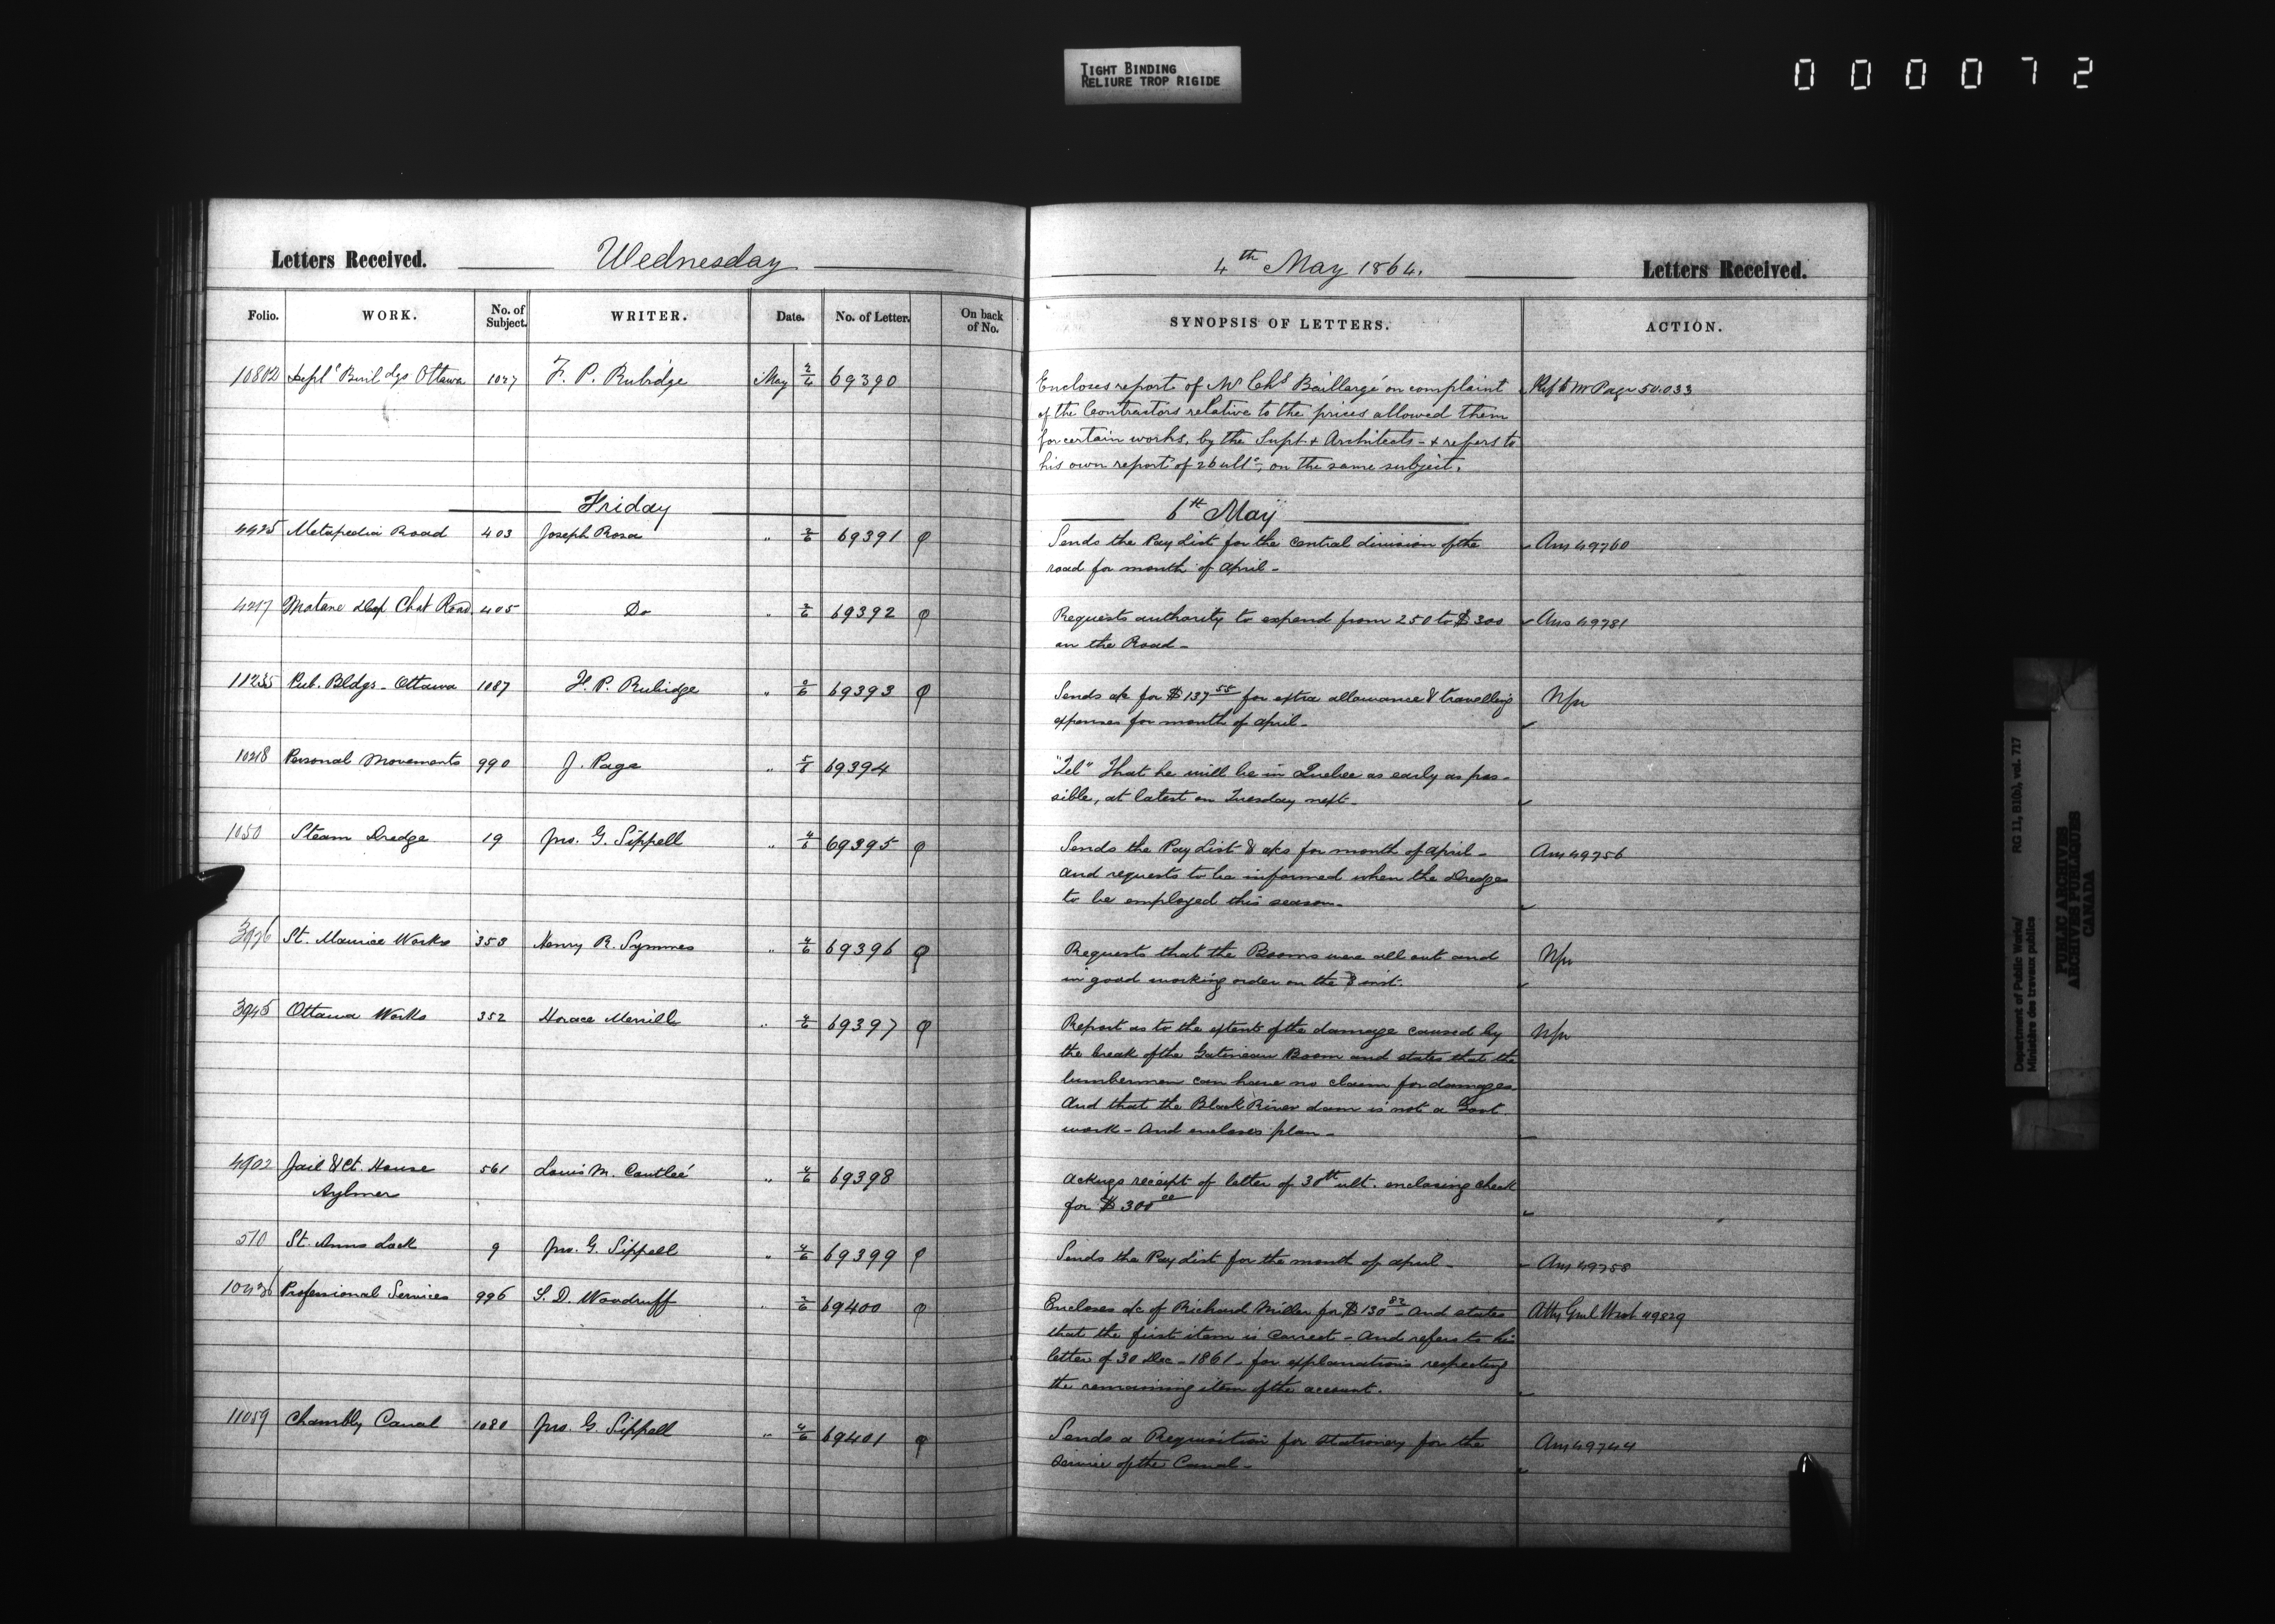 TIGHT BINDING
RELIURE TROP RIGIDE
000072
Letters Received. Wednesday
Folio. WORK. No. of Subject. WRITER. Date. No. of Letter. On back of No.
10802 Deptl Buildgs Ottawa 1047 F. P. Rubidge May 2/4 69390
Friday
4425 Metapedia Road 403 Joseph Rosa " 2/6 69391
4217 Matane & Cap Chat Road 405 Do " 2/6 69392
11235 Pub. Bldgs - Ottawa 1087 F. P. Rubidge " 2/6 69393
10218 Personal Movements 990 J. Page " 5/6 69394
1050 Steam Dredge 19 Jno. G. Sippell " 4/6 69395
3976 St. Maurice Works 353 Henry R. Symmes " 4/6 69396
3945 Ottawa Works 352 Horace Merrill " 4/6 69397
4902 Jail & Ct. House 561 Louis M. Coutlée " 4/6 69398
Aylmer
510 St. Anns Lock 9 Jno. G. Sippell " 4/6 69399
10436 Professional Services 996 S. D. Woodruff " 2/6 69400
11059 Chambly Canal 1080 Jno. G. Sippell " 4/6 69401
4th May 1864. Letters Received.
SYNOPSIS OF LETTERS. ACTION.
Encloses report of Mr Chs Baillargé on complaint Ref to Mr Page 50.033
of the Contractors relative to the prices allowed them
for certain works, by the Supt. & Architects - & refers to
his own report of 26 ulto, on the same subject.
6th May
Sends the Pay List for the central division of the Ans 49760
road for month of April -
Requests authority to expend from 250 to $300 Ans 49781
on the Road -
Sends a/c for $137 55 for extra allowance & travelling Nfr
expenses for month of April -
"Tel" That he will be in Quebec as early as pos-
sible, at latest on Tuesday next -
Sends the Pay List & a/cs for month of April - Ans 49756
And requests to be informed when the Dredge
to be employed this season -
Requests that the Booms were all out and Nfr
in good working order on the 3 inst.
Report as to the extent of the damage caused by Nfr
the break of the Gatineau Boom and states that the
lumbermen can have no claim for damages
And that the Black River dam is not a Govt
work - And encloses plan -
Ackngs receipt of letter of 30th ult. enclosing check
for $300 00
Sends the Pay List for the month of April - Ans 49758
Encloses a/c of Richard Miller for $130 82 - And states Atty Genl West 49829
that the first item is correct - And refers to his
letter of 30 Dec - 1861 - for explanations respecting
the remaining item of the account.
Sends a Requisition for stationery for the Ans 49744
service of the Canal -
Department of Public Works/ RG 11, B1(b), vol. 717
Ministère des travaux publics
PUBLIC ARCHIVES
ARCHIVES PUBLIQUES
CANADA